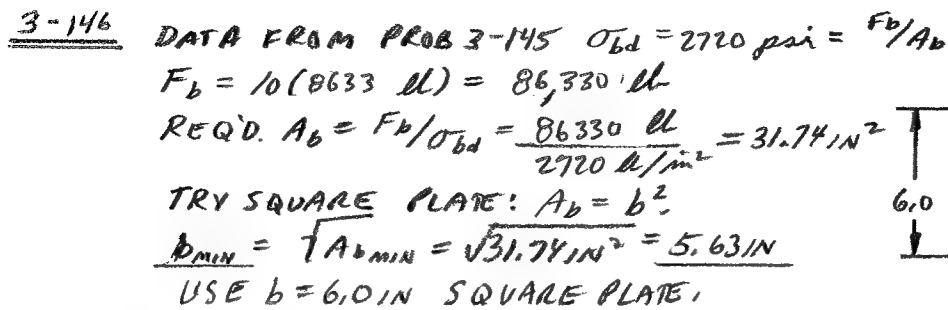 3-146 DATA FROM PROB 3-145 σbd = 2720 psi = Fb/Ab
Fb = 10(8633 lb) = 86,330 lb
REQ'D. Ab = Fb/σbd = 86330 lb / 2720 lb/in² = 31.74 IN²
TRY SQUARE PLATE: Ab = b².
bMIN = √AbMIN = √31.74 IN² = 5.63 IN
6.0
USE b = 6.0 IN SQUARE PLATE.